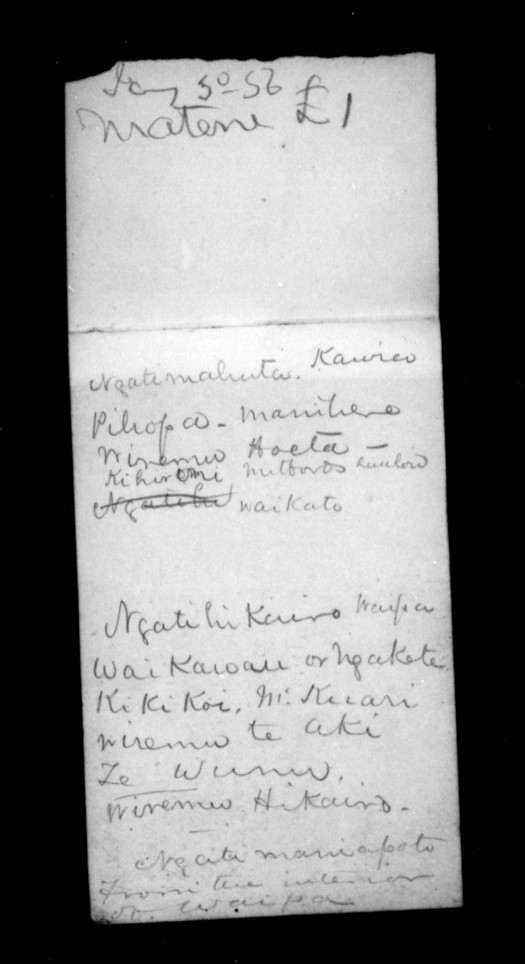 Jany 30-56
Matene £1
Ngatimahuta. Kawica
Pihopa - Manihera
Wiremu Hoeta -
Kihirimi
Ngatihi Waikato
Ngatihikairo Waipa
Waikawau or Ngakete
Kikikoi, Mr.
Wiremu te Aki
Te Wunu.
Wiremu Hikairo.
Ngatimaniapoto
From the interior
of Waipa